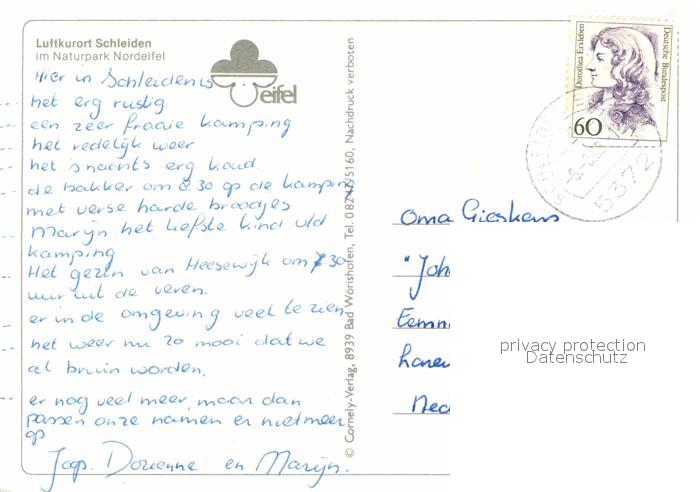 Luftkurort Schleiden
im Naturpark Nordeifel
eifel
Hier in Schleiden is
het erg rustig
een zeer fraaie kamping
het redelijk weer
het s'nachts erg koud.
de bakker om 8 30 op de kamping
met verse harde broodjes
Marijn het liefste kind v/d
kamping
Het gezin van Heeswijk om 7 30
uur uit de veren.
er in de omgeving veel te zien
het weer nu zo mooi dat we
al bruin worden.
er nog veel meer, maar dan
passen onze namen er niet meer
op
Jop. Dorienne en Marijn.
© Cornely-Verlag, 8939 Bad Wörishofen, Tel. 08247/5160, Nachdruck verboten
Dorothea Erxleben
Deutsche Bundespost
60
5372
Oma Gieskens
"Joh
Eemn
Laren
Ned
privacy protection
Datenschutz